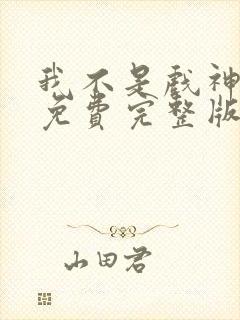 我不是戏神
免费完整版
山田君